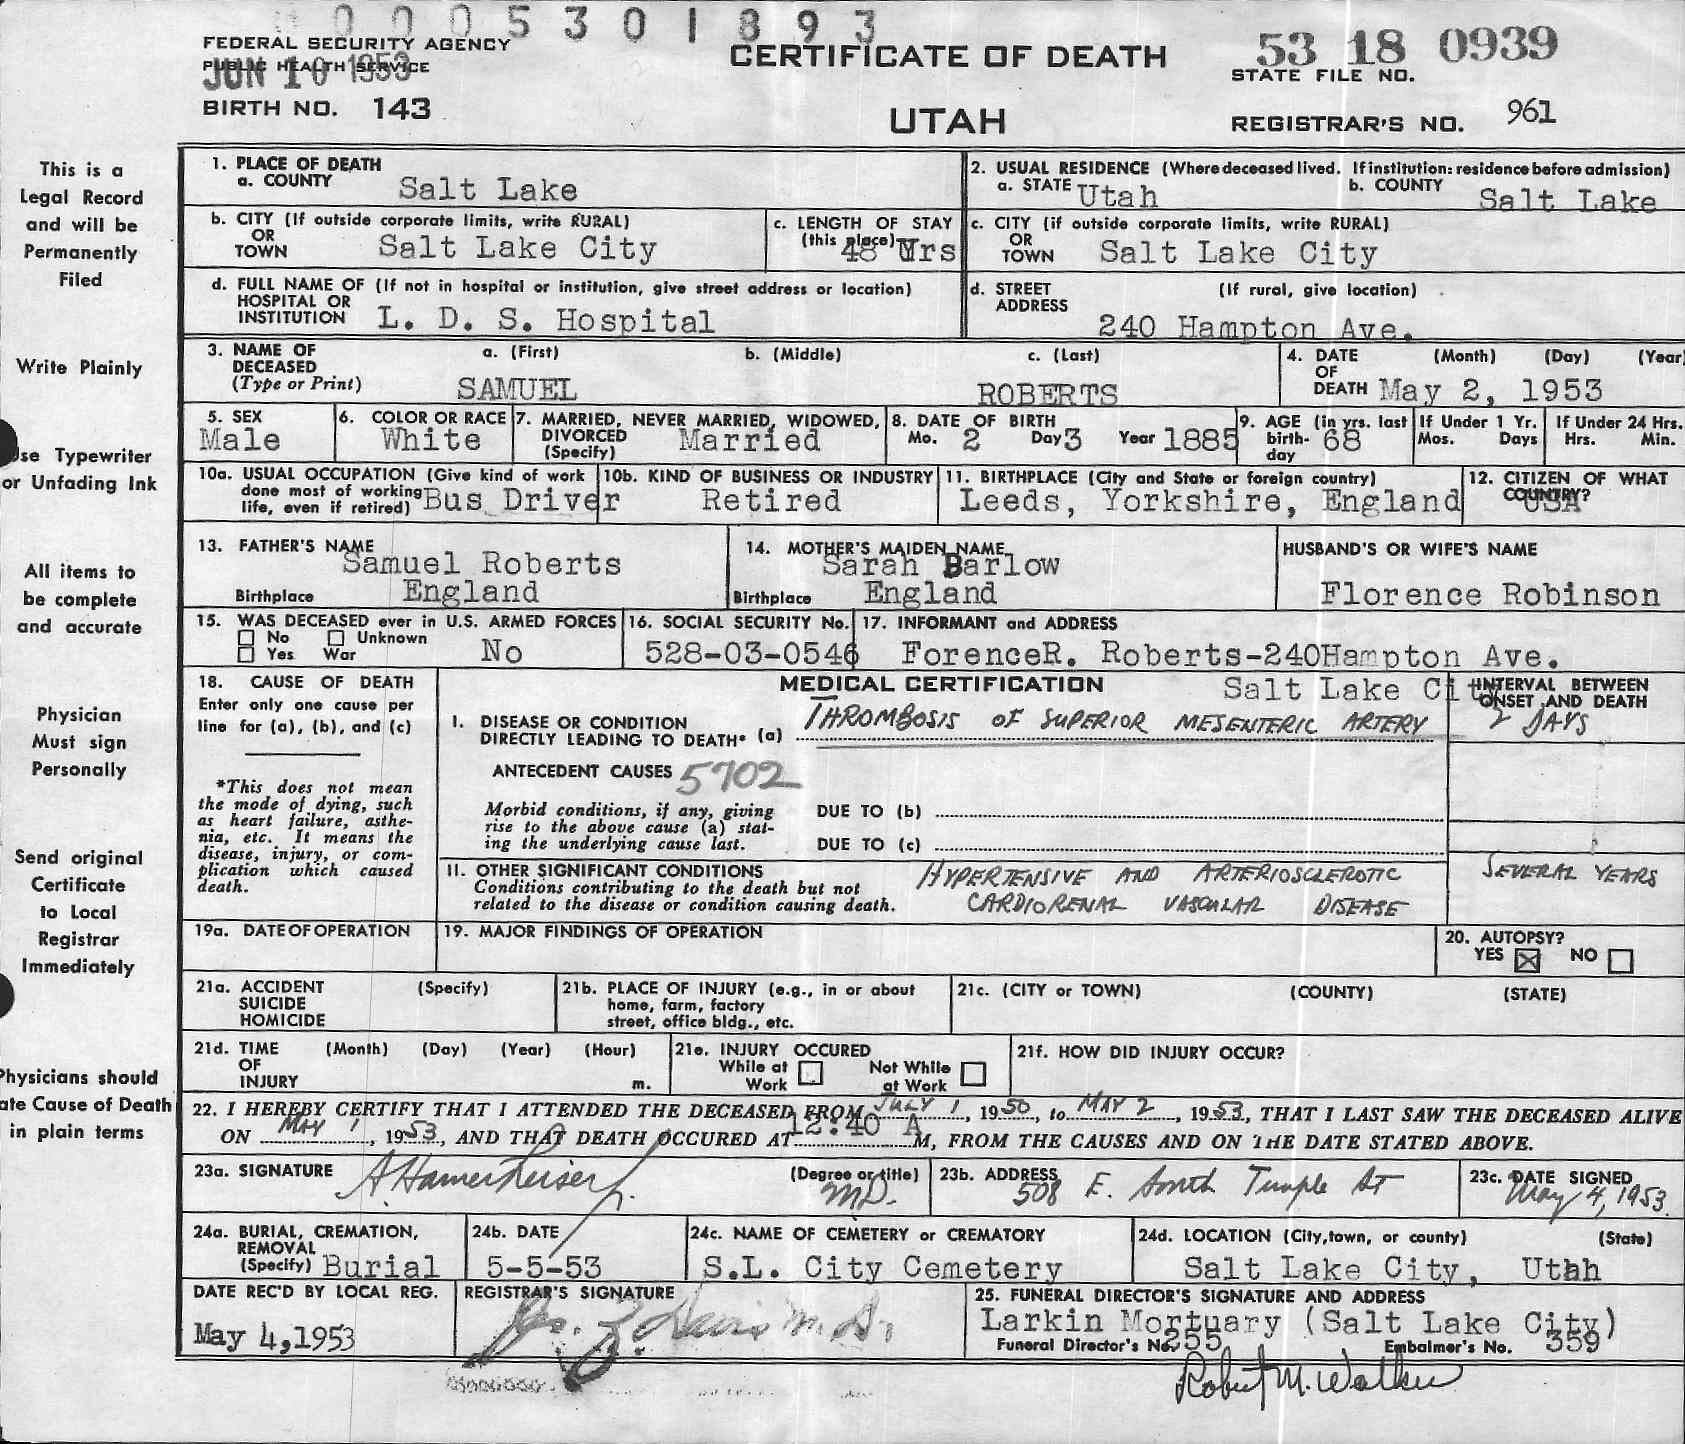 0005301893
FEDERAL SECURITY AGENCY
PUBLIC HEALTH SERVICE
JUN 10 1953
BIRTH NO. 143
CERTIFICATE OF DEATH
UTAH
53 18 0939
STATE FILE NO.
REGISTRAR'S NO. 961
This is a
Legal Record
and will be
Permanently
Filed
Write Plainly
Use Typewriter
or Unfading Ink
All items to
be complete
and accurate
Physician
Must sign
Personally
Send original
Certificate
to Local
Registrar
Immediately
Physicians should
ate Cause of Death
in plain terms
1. PLACE OF DEATH
a. COUNTY Salt Lake
2. USUAL RESIDENCE (Where deceased lived. If institution: residence before admission)
a. STATE Utah b. COUNTY Salt Lake
b. CITY (If outside corporate limits, write RURAL)
OR
TOWN Salt Lake City
c. LENGTH OF STAY
(this place) 48 Yrs
c. CITY (if outside corporate limits, write RURAL)
OR
TOWN Salt Lake City
d. FULL NAME OF (If not in hospital or institution, give street address or location)
HOSPITAL OR
INSTITUTION L. D. S. Hospital
d. STREET (If rural, give location)
ADDRESS
240 Hampton Ave.
3. NAME OF a. (First) b. (Middle) c. (Last)
DECEASED
(Type or Print) SAMUEL ROBERTS
4. DATE (Month) (Day) (Year)
OF
DEATH May 2, 1953
5. SEX
Male
6. COLOR OR RACE
White
7. MARRIED, NEVER MARRIED, WIDOWED,
DIVORCED
(Specify) Married
8. DATE OF BIRTH
Mo. 2 Day 3 Year 1885
9. AGE (in yrs. last
birth-
day 68
If Under 1 Yr.
Mos. Days
If Under 24 Hrs.
Hrs. Min.
10a. USUAL OCCUPATION (Give kind of work
done most of working
life, even if retired) Bus Driver
10b. KIND OF BUSINESS OR INDUSTRY
Retired
11. BIRTHPLACE (City and State or foreign country)
Leeds, Yorkshire, England
12. CITIZEN OF WHAT
COUNTRY?
USA
13. FATHER'S NAME
Samuel Roberts
Birthplace England
14. MOTHER'S MAIDEN NAME
Sarah Barlow
Birthplace England
HUSBAND'S OR WIFE'S NAME
Florence Robinson
15. WAS DECEASED ever in U.S. ARMED FORCES
No Unknown
Yes War No
16. SOCIAL SECURITY No.
528-03-0546
17. INFORMANT and ADDRESS
ForenceR. Roberts-240Hampton Ave.
Salt Lake City
18. CAUSE OF DEATH
Enter only one cause per
line for (a), (b), and (c)
*This does not mean
the mode of dying, such
as heart failure, asthe-
nia, etc. It means the
disease, injury, or com-
plication which caused
death.
MEDICAL CERTIFICATION
INTERVAL BETWEEN
ONSET AND DEATH
I. DISEASE OR CONDITION
DIRECTLY LEADING TO DEATH* (a) THROMBOSIS OF SUPERIOR MESENTERIC ARTERY 2 DAYS
ANTECEDENT CAUSES 5702
Morbid conditions, if any, giving
rise to the above cause (a) stat-
ing the underlying cause last.
DUE TO (b)
DUE TO (c)
II. OTHER SIGNIFICANT CONDITIONS
Conditions contributing to the death but not
related to the disease or condition causing death.
HYPERTENSIVE AND ARTERIOSCLEROTIC
CARDIORENAL VASCULAR DISEASE
SEVERAL YEARS
19a. DATE OF OPERATION
19. MAJOR FINDINGS OF OPERATION
20. AUTOPSY?
YES X NO
21a. ACCIDENT (Specify)
SUICIDE
HOMICIDE
21b. PLACE OF INJURY (e.g., in or about
home, farm, factory
street, office bldg., etc.
21c. (CITY or TOWN) (COUNTY) (STATE)
21d. TIME (Month) (Day) (Year) (Hour)
OF
INJURY m.
21e. INJURY OCCURED
While at Not While
Work at Work
21f. HOW DID INJURY OCCUR?
22. I HEREBY CERTIFY THAT I ATTENDED THE DECEASED FROM JULY 1, 1950, to MAY 2, 1953, THAT I LAST SAW THE DECEASED ALIVE
ON MAY 1, 1953, AND THAT DEATH OCCURED AT 12:40 A M, FROM THE CAUSES AND ON THE DATE STATED ABOVE.
23a. SIGNATURE (Degree or title)
M.D.
23b. ADDRESS
508 E. South Temple St
23c. DATE SIGNED
May 4, 1953
24a. BURIAL, CREMATION,
REMOVAL
(Specify) Burial
24b. DATE
5-5-53
24c. NAME OF CEMETERY or CREMATORY
S.L. City Cemetery
24d. LOCATION (City, town, or county) (State)
Salt Lake City, Utah
DATE REC'D BY LOCAL REG.
May 4, 1953
REGISTRAR'S SIGNATURE
25. FUNERAL DIRECTOR'S SIGNATURE AND ADDRESS
Larkin Mortuary (Salt Lake City)
Funeral Director's No. 255 Embalmer's No. 359
Robert M. Walker